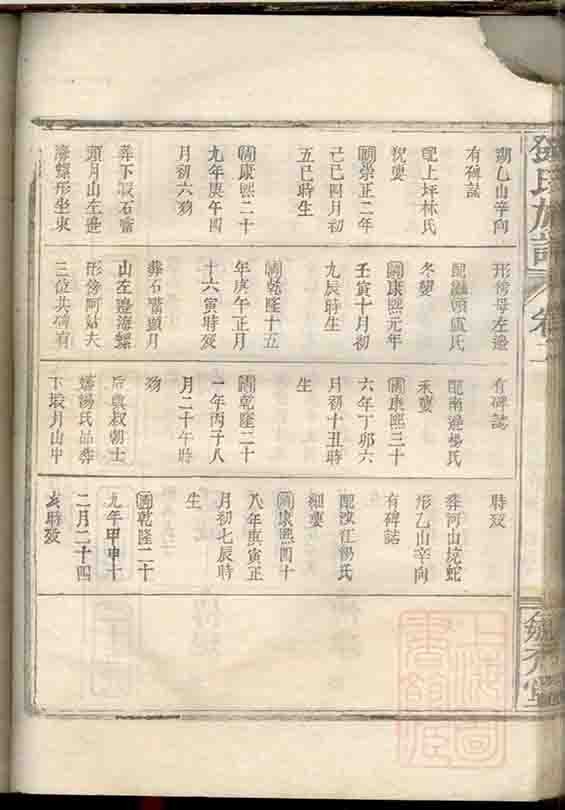 氏族譜
卷二
堂
湖乙山辛向
有碑誌
配上坪林氏
猊娶
崇正二年
己巳四月初
五巳時生
康熙二十
九年庚午四
月初六歿
葬下塅石嘴
頭月山左邊
海螺形坐東
形傍母左邊
配 頭盧氏
冬娶
康熙元年
壬寅十月初
九辰時生
乾隆十五
年庚午正月
十六寅時歿
葬石嘴頭月
山左邊海螺
形傍阿姑夫
三位共碑有
有碑誌
配南 楊氏
未娶
康熙三十
六年丁卯六
月初十丑時
生
乾隆二十
一年丙子八
月二十午時
歿
后與叔朝士
湯氏品葬
下塅月山中
時歿
葬河山坑蛇
形乙山辛向
有碑誌
配汶江楊氏
細娶
康熙四十
八年庚寅正
月初七辰時
生
乾隆二十
九年甲申十
二月二十四
亥時歿
上海圖
書館藏